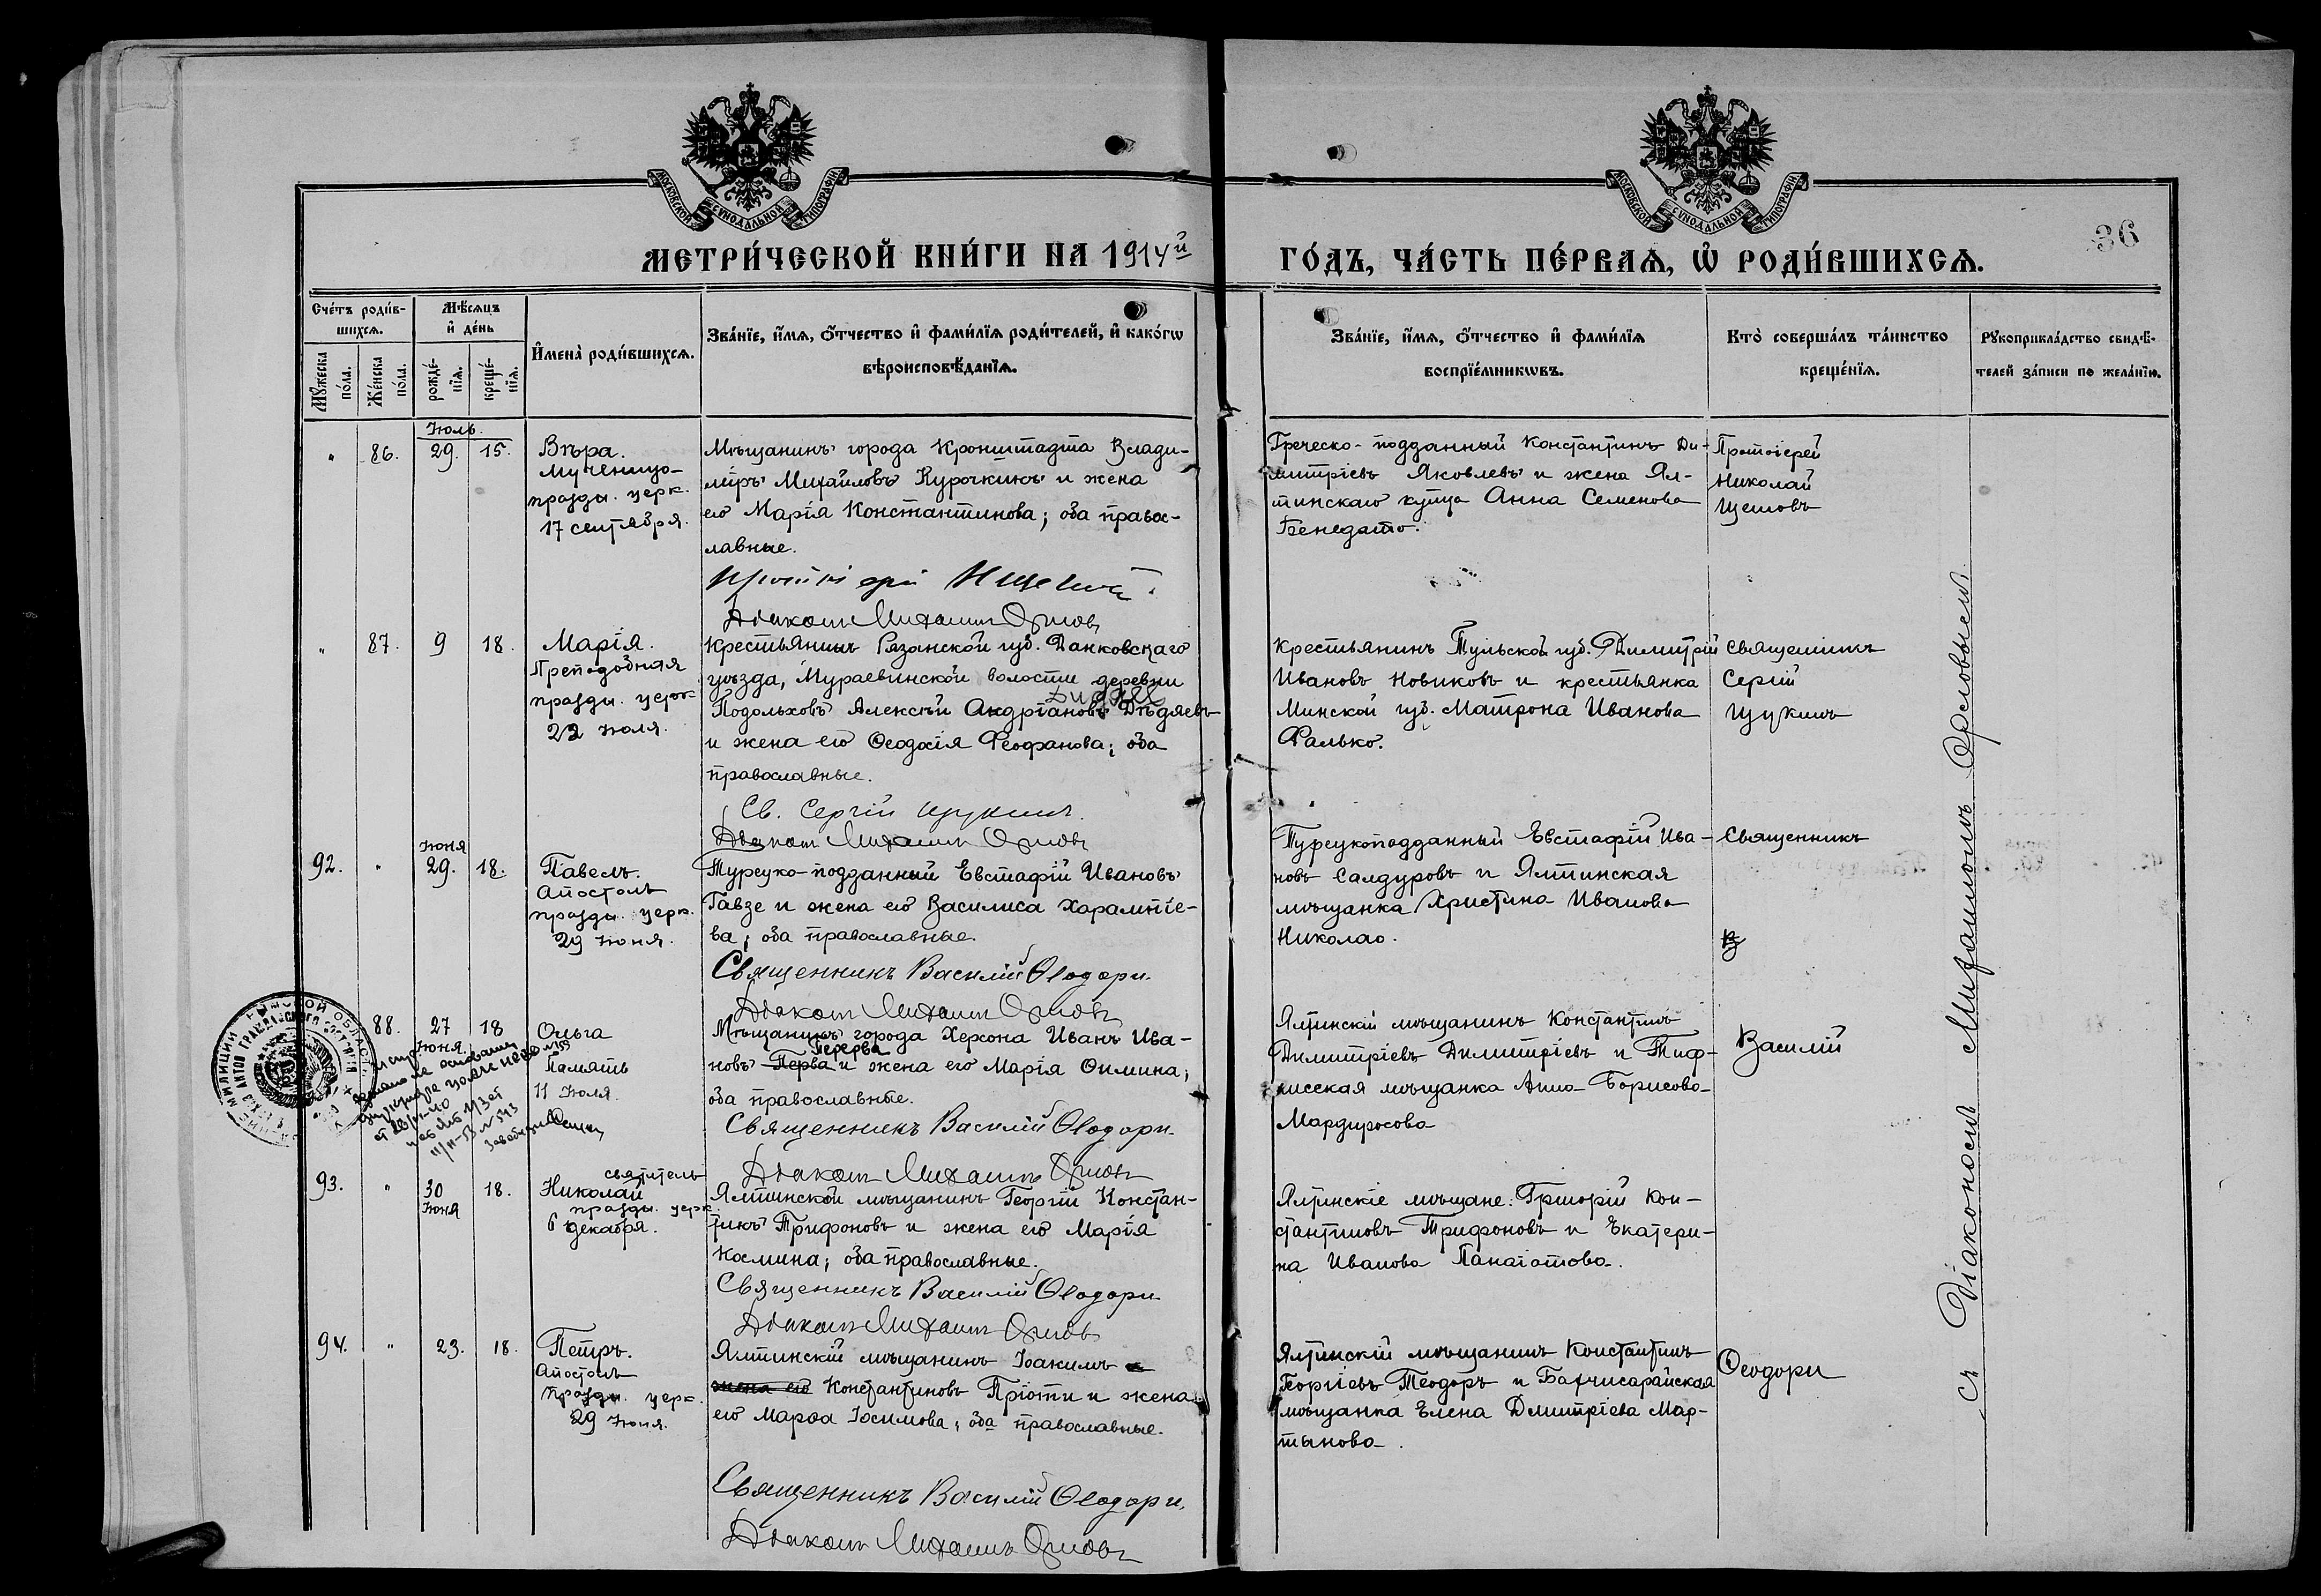 МОСКОВСКОЙ СѴНОДАЛЬНОЙ ТИПОГРАФІИ
МОСКОВСКОЙ СѴНОДАЛЬНОЙ ТИПОГРАФІИ
36
МЕТРИ́ЧЕСКОЙ КНИ́ГИ НА 1914й
ГО́ДЪ, ЧА́СТЬ ПЕ́РВАѦ, Ѡ҆ РОДИ́ВШИХСѦ.
Сче́тъ роди́в-
шихсѧ.
Мѣ́сѧцъ
и҆ де́нь
Мꙋ́жеска
по́ла.
Же́нска
по́ла.
рожде́-
нїѧ.
креще́-
нїѧ.
И҆мена̀ роди́вшихсѧ.
Зва́нїе, и҆́мѧ, ѻ҆́тчество и҆ фами́лїѧ роди́телей, и҆ како́гѡ
вѣроисповѣ́данїѧ.
Зва́нїе, и҆́мѧ, ѻ҆́тчество и҆ фами́лїѧ
воспрїе́мникѡвъ.
Кто̀ соверша́лъ та́инство
креще́нїѧ.
Рꙋкоприкла́дство свидѣ́-
телей за́писи по жела́нїю.
Июль.
" 86. 29. 15. Вѣра.
Мученицо-
праздн. церк.
17 сентября.
Мѣщанинъ города Кронштадта Влади-
міръ Михайловъ Курочкинъ и жена
его Марія Константинова; оба правос-
лавные.
Протоіерей Н Щегловъ.
Діаконъ Михаилъ Орловъ
Греческо-подданный Константинъ Ди-
митріевъ Яковлевъ и жена Ял-
тинскаго купца Анна Семенова
Бенедато.
Протоіерей
Николай
Щегловъ
" 87. 9 18. Марія.
Преподобная
праздн. церк.
22 июля.
Крестьянинъ Рязанской губ. Данковскаго
уѣзда, Мураевинской волости деревни
Подольховъ Алексѣй Андріановъ Дѣдяевъ
и жена его Ѳеодосія Ѳеофанова; оба
православные.
Св. Сергій Щукинъ.
Діаконъ Михаилъ Орловъ
Крестьянинъ Тульской губ. Димитрій
Ивановъ Новиковъ и крестьянка
Минской губ. Матрона Иванова
Фалько.
Священникъ
Сергій
Щукинъ
92. " июня 29. 18. Павелъ.
Апостолъ
праздн. церк.
29 июня.
Турецко-подданный Евстафій Ивановъ
Гавзе и жена его Василиса Харампіе-
ва; оба православные.
Священникъ Василій Ѳеодори.
Діаконъ Михаилъ Орловъ
Турецкоподданный Евстафій Ива-
новъ Салдуровъ и Ялтинская
мѣщанка Христина Иванова
Николао.
Священникъ
88. 27 июня 18 Ольга
Память
11 Июля.
Мѣщанинъ города Херсона Иванъ Ива-
Перерва
новъ Перва и жена его Марія Ѳомина;
оба православные.
Священникъ Василій Ѳеодори.
Діаконъ Михаилъ Орловъ
Ялтинскій мѣщанинъ Константинъ
Димитріевъ Димитріевъ и Тиф-
лисская мѣщанка Анна Борисова
Мардиросова
Василій
93. " 30 июня 18. святитель
Николай
праздн. церк.
6 декабря.
Ялтинской мѣщанинъ Георгій Констан-
тинъ Трифоновъ и жена его Марія
Космина; оба православные.
Священникъ Василій Ѳеодори
Діаконъ Михаилъ Орловъ
Ялтинскіе мѣщане: Григорій Кон-
стантиновъ Трифоновъ и Екатери-
на Иванова Панаіотова.
94. " 23. 18. Петръ.
Апостолъ
праздн. церк.
29 июня.
Ялтинскій мѣщанинъ Іоакимъ и
жена его Константиновъ Пріоти и жена
его Марѳа Іосимова; оба православные.
Священникъ Василій Ѳеодори.
Діаконъ Михаилъ Орловъ
Ялтинскій мѣщанинъ Константинъ
Георгіевъ Теодоръ и Бахчисарайская
мѣщанка Елена Дмитріева Мар-
тынова.
Ѳеодори
съ Діакономъ Михаиломъ Орловымъ.